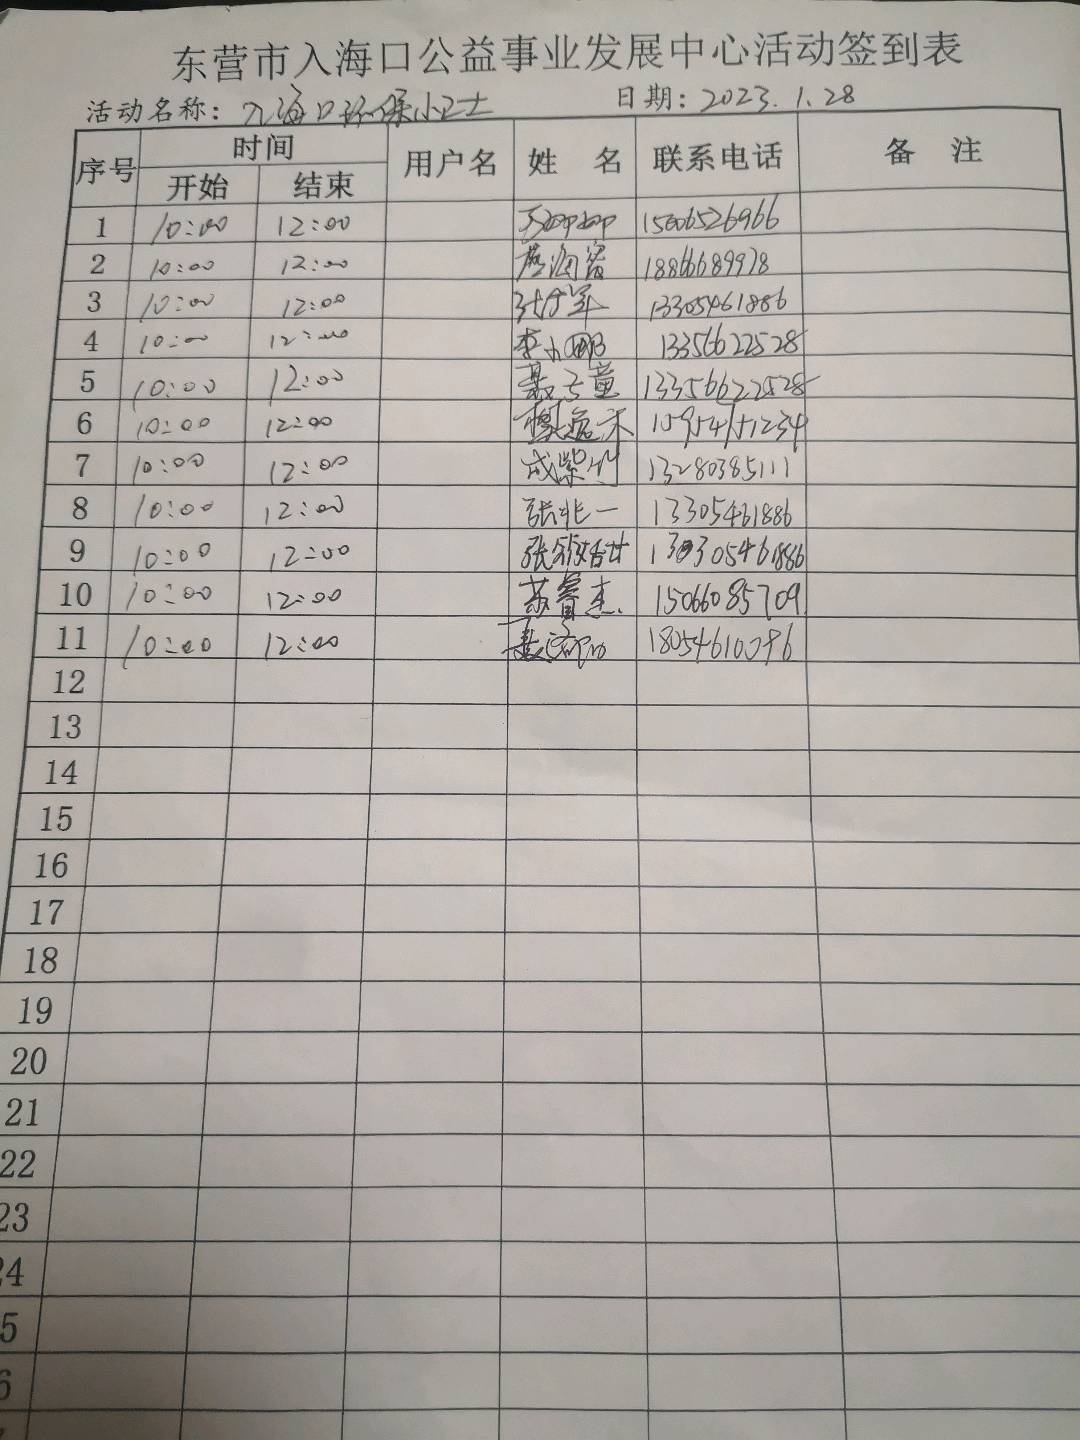 东营市入海口公益事业发展中心活动签到表
活动名称：入海口环保小卫士 日期：2023.1.28
序号 时间 用户名 姓 名 联系电话 备 注
开始 结束
1 10:00 12:00 15006526966
2 10:00 12:00 18866689978
3 10:00 12:00 13305461886
4 10:00 12:00 李小娜 13356622528
5 10:00 12:00 聂子童 13356622528
6 10:00 12:00 15954151234
7 10:00 12:00 成紫竹 13280385111
8 10:00 12:00 张兆一 13305461886
9 10:00 12:00 13305461886
10 10:00 12:00 苏睿杰 15066085709
11 10:00 12:00
12
13
14
15
16
17
18
19
20
21
22
23
24
5
6